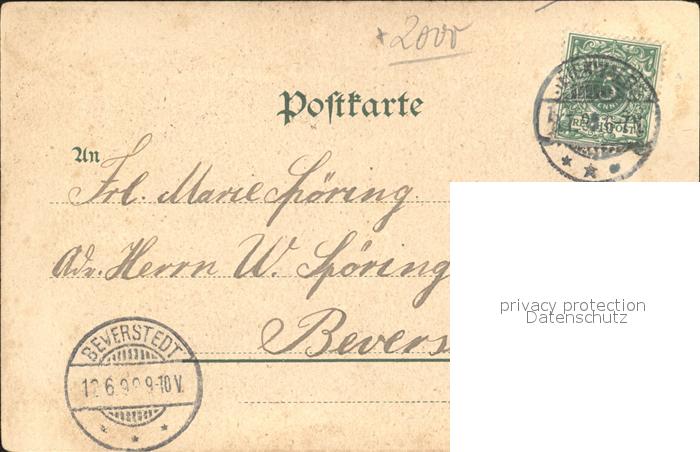 *2000
Postkarte
An
Frl. Marie Spöring
Adr. Herrn W. Spöring
Bevers
privacy protection
Datenschutz
BEVERSTEDT
12 6.99 9-10 V.
REICHSPOST